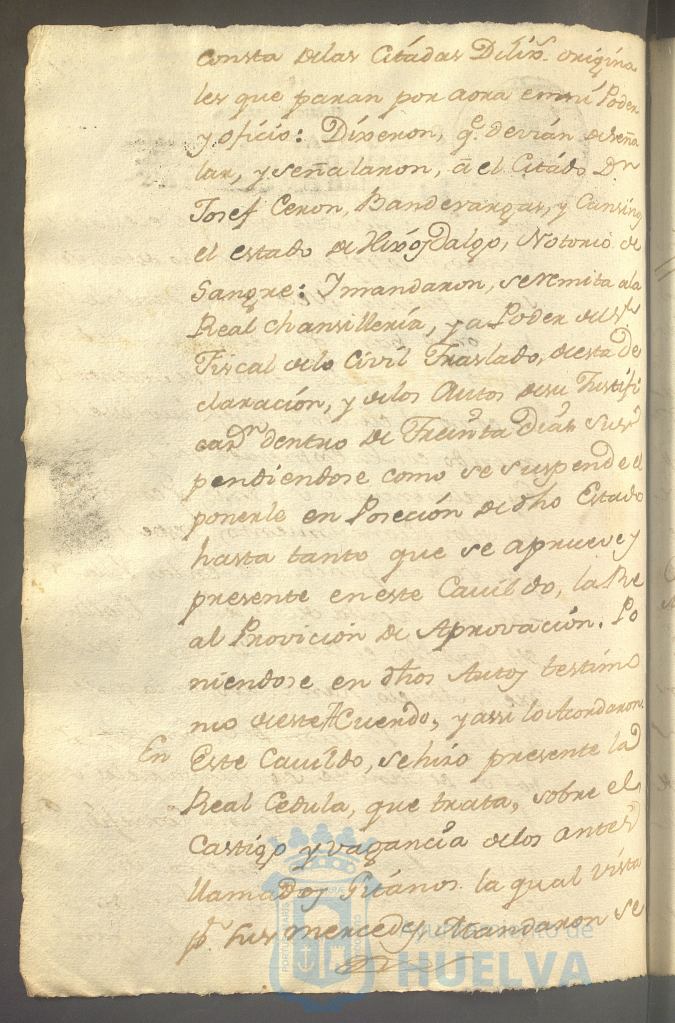 consta de las Citádas Dilix.s origina
les que paran por aora en mi Poder
y oficio: Dixeron, q.e devián de seña
lar, y señalaron, á el Citádo D.n
Josef Ceron, Bandevargas, y Cansino
el estado de Hixosdalgo, Notorio de
Sangre: Y mandaron, se remita a la
Real Chansilleria, y a Poder del S.r
Fiscal de lo Civil Traslado, de esta de
claración, y de los Autos de su Justifi
cas.n dentro de Treinta Dias sus
pendiendose como se suspende el
ponerle en Poseción de dho Estado
hasta tanto que se aprueve y
presente en este Cavildo, la Re
al Provición de Aprovación. Po
niendose en dhos Autos testimo
nio de este Acuerdo, y assi lo Acordaron.
En
Este Cavildo, se hizo presente la
Real Cedula, que trata, sobre el
Castigo y vagancia de los antes
llamados Gitanos. la qual vista
p.r sus mercedes Mandaron se
Ayuntamiento de
HUELVA